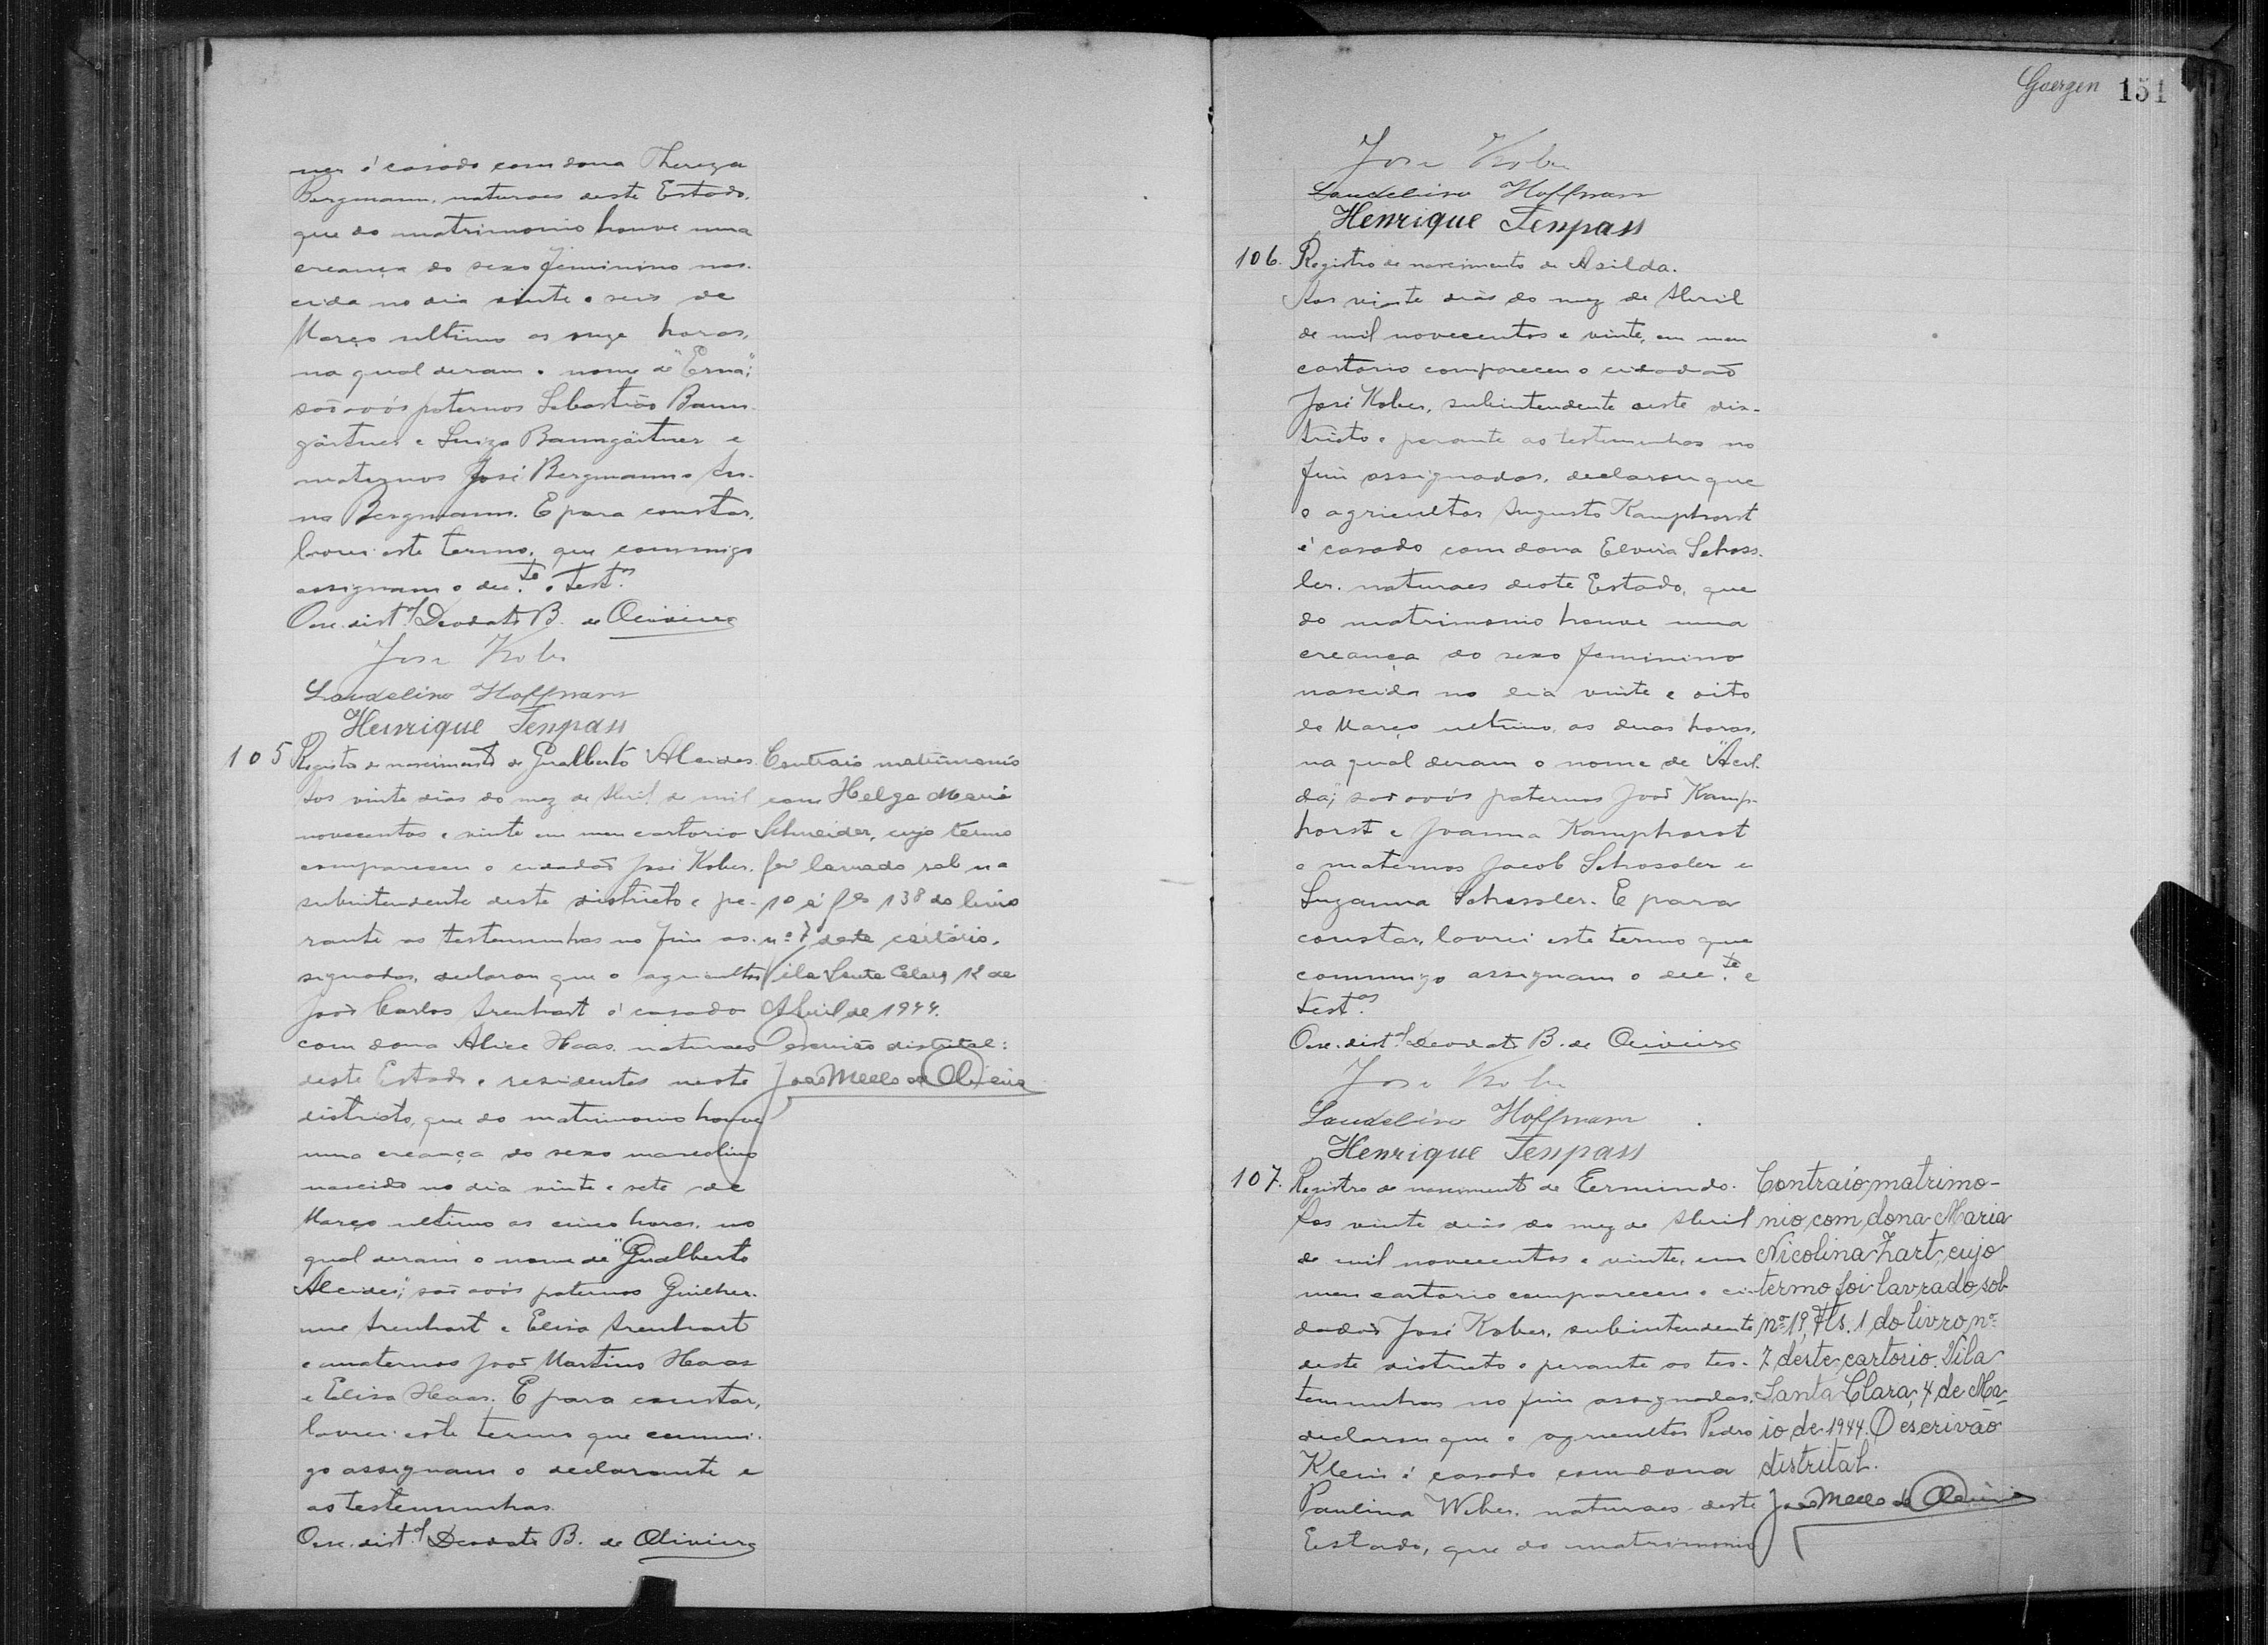 ner é casado com dona Thereza
Bergmann, naturaes deste Estado,
que do matrimonio houve uma
creança do sexo feminino nas-
cida no dia vinte e seis de
Março ultimo as onze horas,
na qual deram o nome de "Erna";
são avós paternos Sebastião Baum-
gärtner e Luiza Baumgärtner e
maternos José Bergmann e An-
na Bergmann. E para constar,
lavrei este termo, que commigo
assignam o dec.te e test.as
O esc. dist.al Deodato B. de Oliveira
José Kober
Laudelino Hoffmann
Henrique Tenpass
105 Registro de nascimento de Gualberto Alcides.
Aos vinte dias do mez de Abril de mil
novecentos e vinte em meu cartorio
compareceu o cidadão José Kober,
subintendente deste districto e pe-
rante as testemunhas no fim as-
signadas, declarou que o agricultor
João Carlos Arenhart é casado
com dona Alice Haas, naturaes
deste Estado e residentes neste
districto, que do matrimonio houve
uma creança do sexo masculino
nascido no dia vinte e sete de
Março ultimo as cinco horas, no
qual deram o nome de "Gualberto
Alcides"; são avós paternos Guilher-
me Arenhart e Elisa Arenhart
e maternos João Martins Haas
e Elisa Haas. E para constar,
lavrei este termo que commi-
go assignam o declarante e
as testemunhas.
O esc. dist.al Deodato B. de Oliveira
Contraiu matrimonio
com Helga Maria
Schneider, cujo termo
foi lavrado sob nº
10 á fls 138 do livro
nº 7 deste cartório.
Vila Santa Clara, 12 de
Abril de 1944.
O escrivão distrital:
João Mello de Oliveira
Goergen 151
José Kober
Laudelino Hoffmann
Henrique Tenpass
106. Registro de nascimento de Asilda.
Aos vinte dias do mez de Abril
de mil novecentos e vinte, em meu
cartorio compareceu o cidadão
José Kober, subintendente deste dis-
tricto e perante as testemunhas no
fim assignadas, declarou que
o agricultor Augusto Kamphorst
é casado com dona Elvira Schoss-
ler, naturaes deste Estado, que
do matrimonio houve uma
creança do sexo feminino
nascida no dia vinte e oito
de Março ultimo, as duas horas,
na qual deram o nome de "Acil-
da"; são avós paternos João Kamp-
horst e Joanna Kamphorst
e maternos Jacob Schossler e
Suzanna Schossler. E para
constar, lavrei este termo que
commigo assignam o dec.te e
test.as
O esc. dist.al Deodato B. de Oliveira
José Kober
Laudelino Hoffmann
Henrique Tenpass
107. Registro de nascimento de Ermindo.
Aos vinte dias do mez de Abril
de mil novecentos e vinte, em
meu cartorio compareceu o ci-
dadão José Kober, subintendente
deste districto e perante as tes-
temunhas no fim assignadas,
declarou que o agricultor Pedro
Klein é casado com dona
Paulina Weber, naturaes deste
Estado, que do matrimonio
Contraío matrimo-
nio com dona Maria
Nicolina Zart, cujo
termo foi lavrado sob
nº 19, Fls. 1 do livro nº
7 deste cartorio. Vila
Santa Clara, 4 de Ma-
io de 1944. O escrivão
distrital.
João Mello de Oliveira